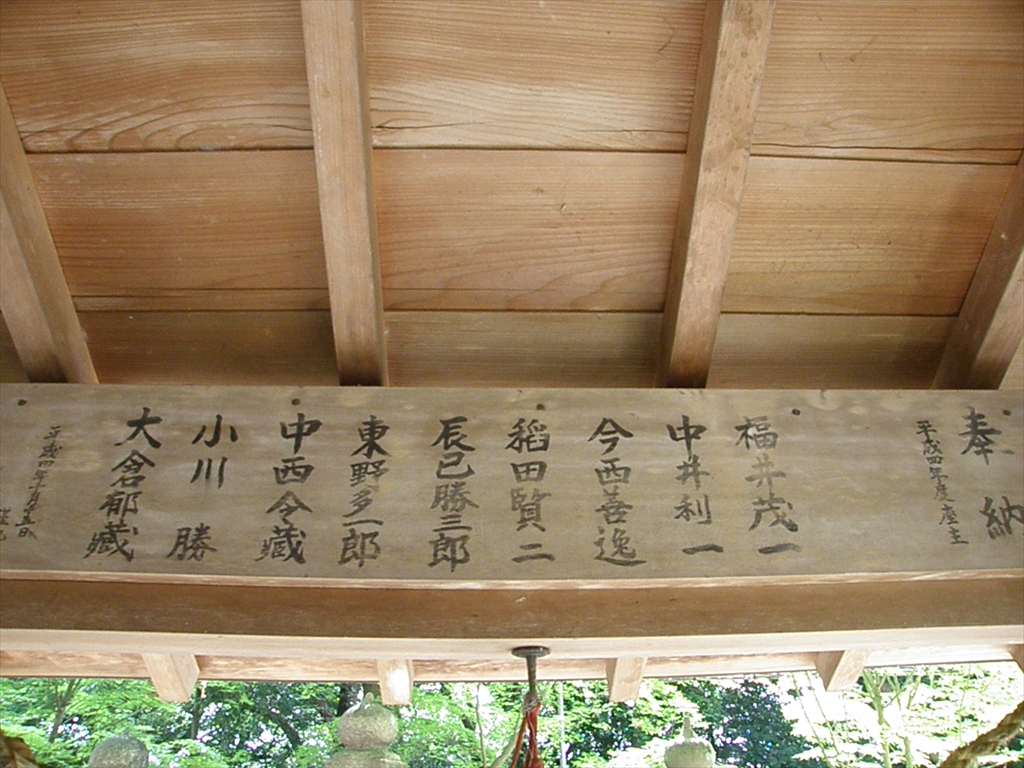 奉納
平成四年度座主
福井茂一
中井利一
今西善逸
稲田賢二
辰己勝三郎
東野多一郎
中西今蔵
小川勝
大倉郁蔵
平成四年十月十五日